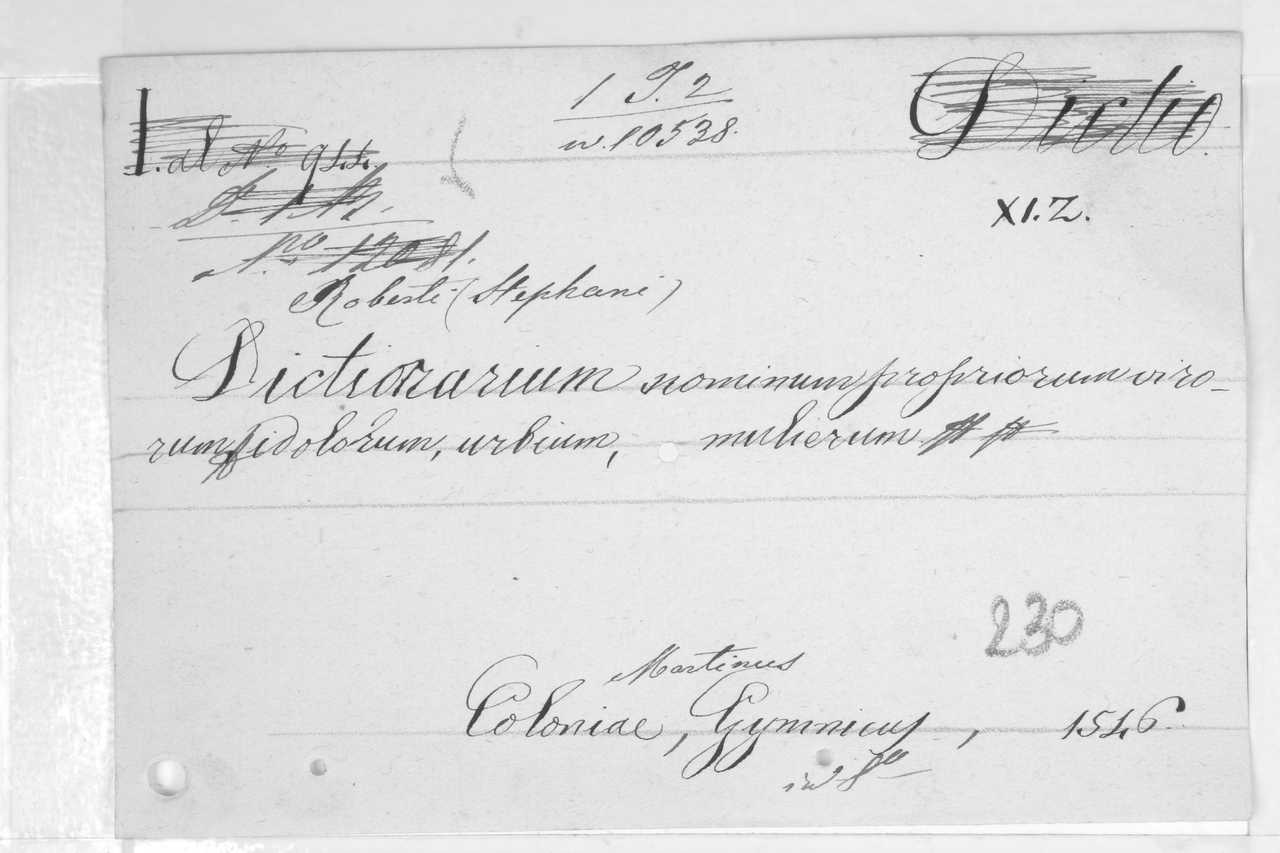 1 T. 2
w. 10538.
Dictio.
I. al No 944.
XI. Z.
No 12081.
Roberti (Stephani)
Dictionarium nominum propriorum viro-
rum, idolorum, urbium, mulierum
230
Martinus
Coloniae, Gymnicus, 1546.
in 8o